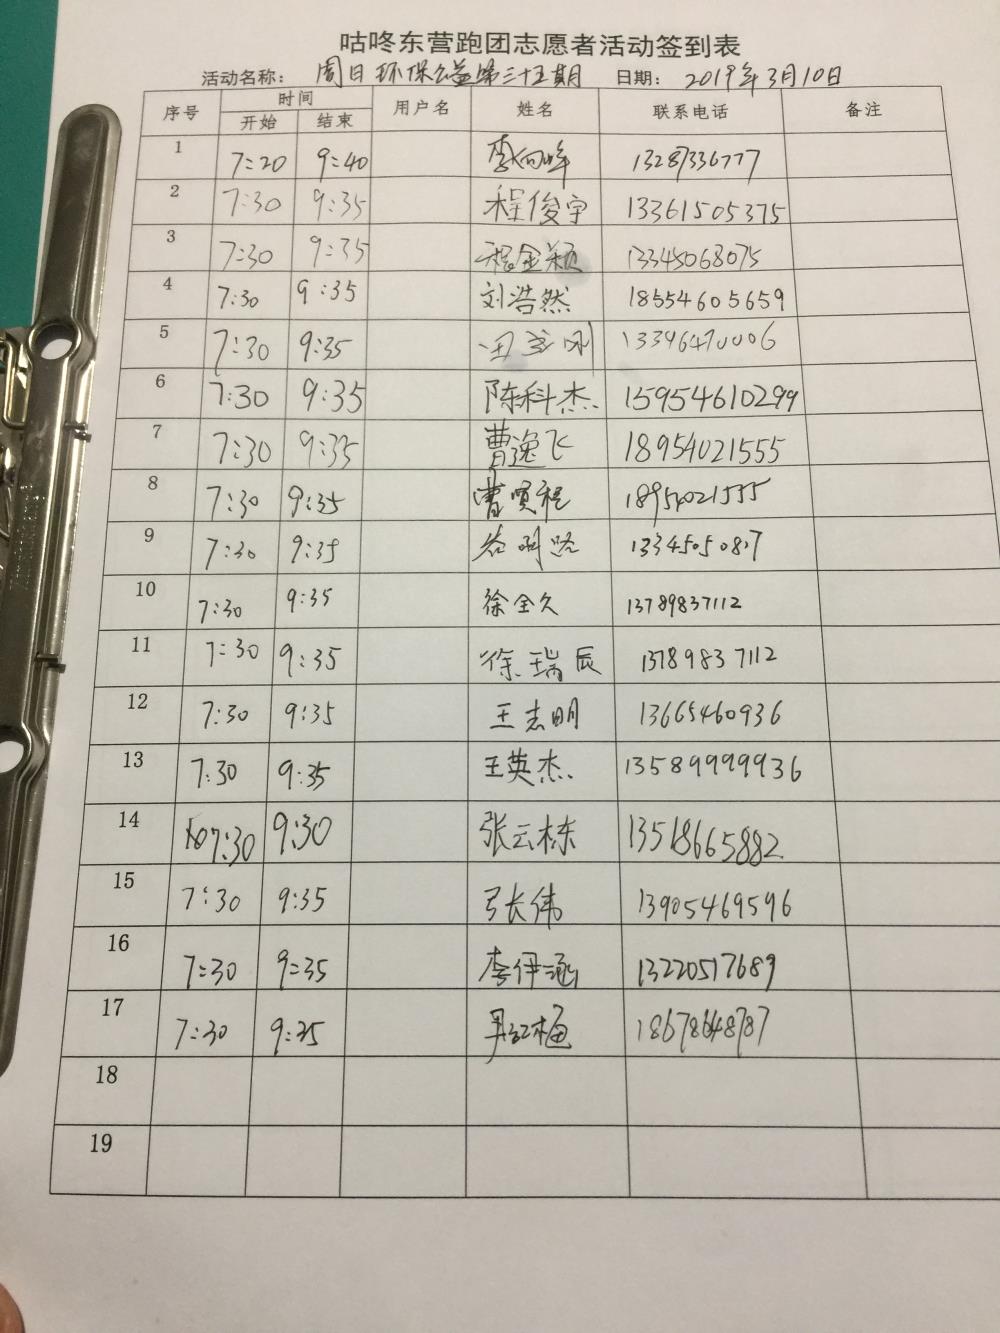 咕咚东营跑团志愿者活动签到表
活动名称： 周日环保公益第三十五期 日期： 2019年3月10日
序号 时间 用户名 姓名 联系电话 备注
开始 结束
1 7:20 9:40 李向峰 13287336777
2 7:30 9:35 程俊宇 13361505375
3 7:30 9:35 程金颖 13345068075
4 7:30 9:35 刘浩然 18554605659
5 7:30 9:35 13396470006
6 7:30 9:35 陈科杰 15954610299
7 7:30 9:35 曹逸飞 18954021555
8 7:30 9:35 曹贤程 18954021555
9 7:30 9:35 13345050817
10 7:30 9:35 徐全久 13789837112
11 7:30 9:35 徐瑞辰 13789837112
12 7:30 9:35 王志明 13665460936
13 7:30 9:35 王英杰 13589999936
14 7:30 9:30 张云栋 13518665882
15 7:30 9:35 张伟 13905469596
16 7:30 9:35 李伊涵 13220517689
17 7:30 9:35 18678648787
18
19